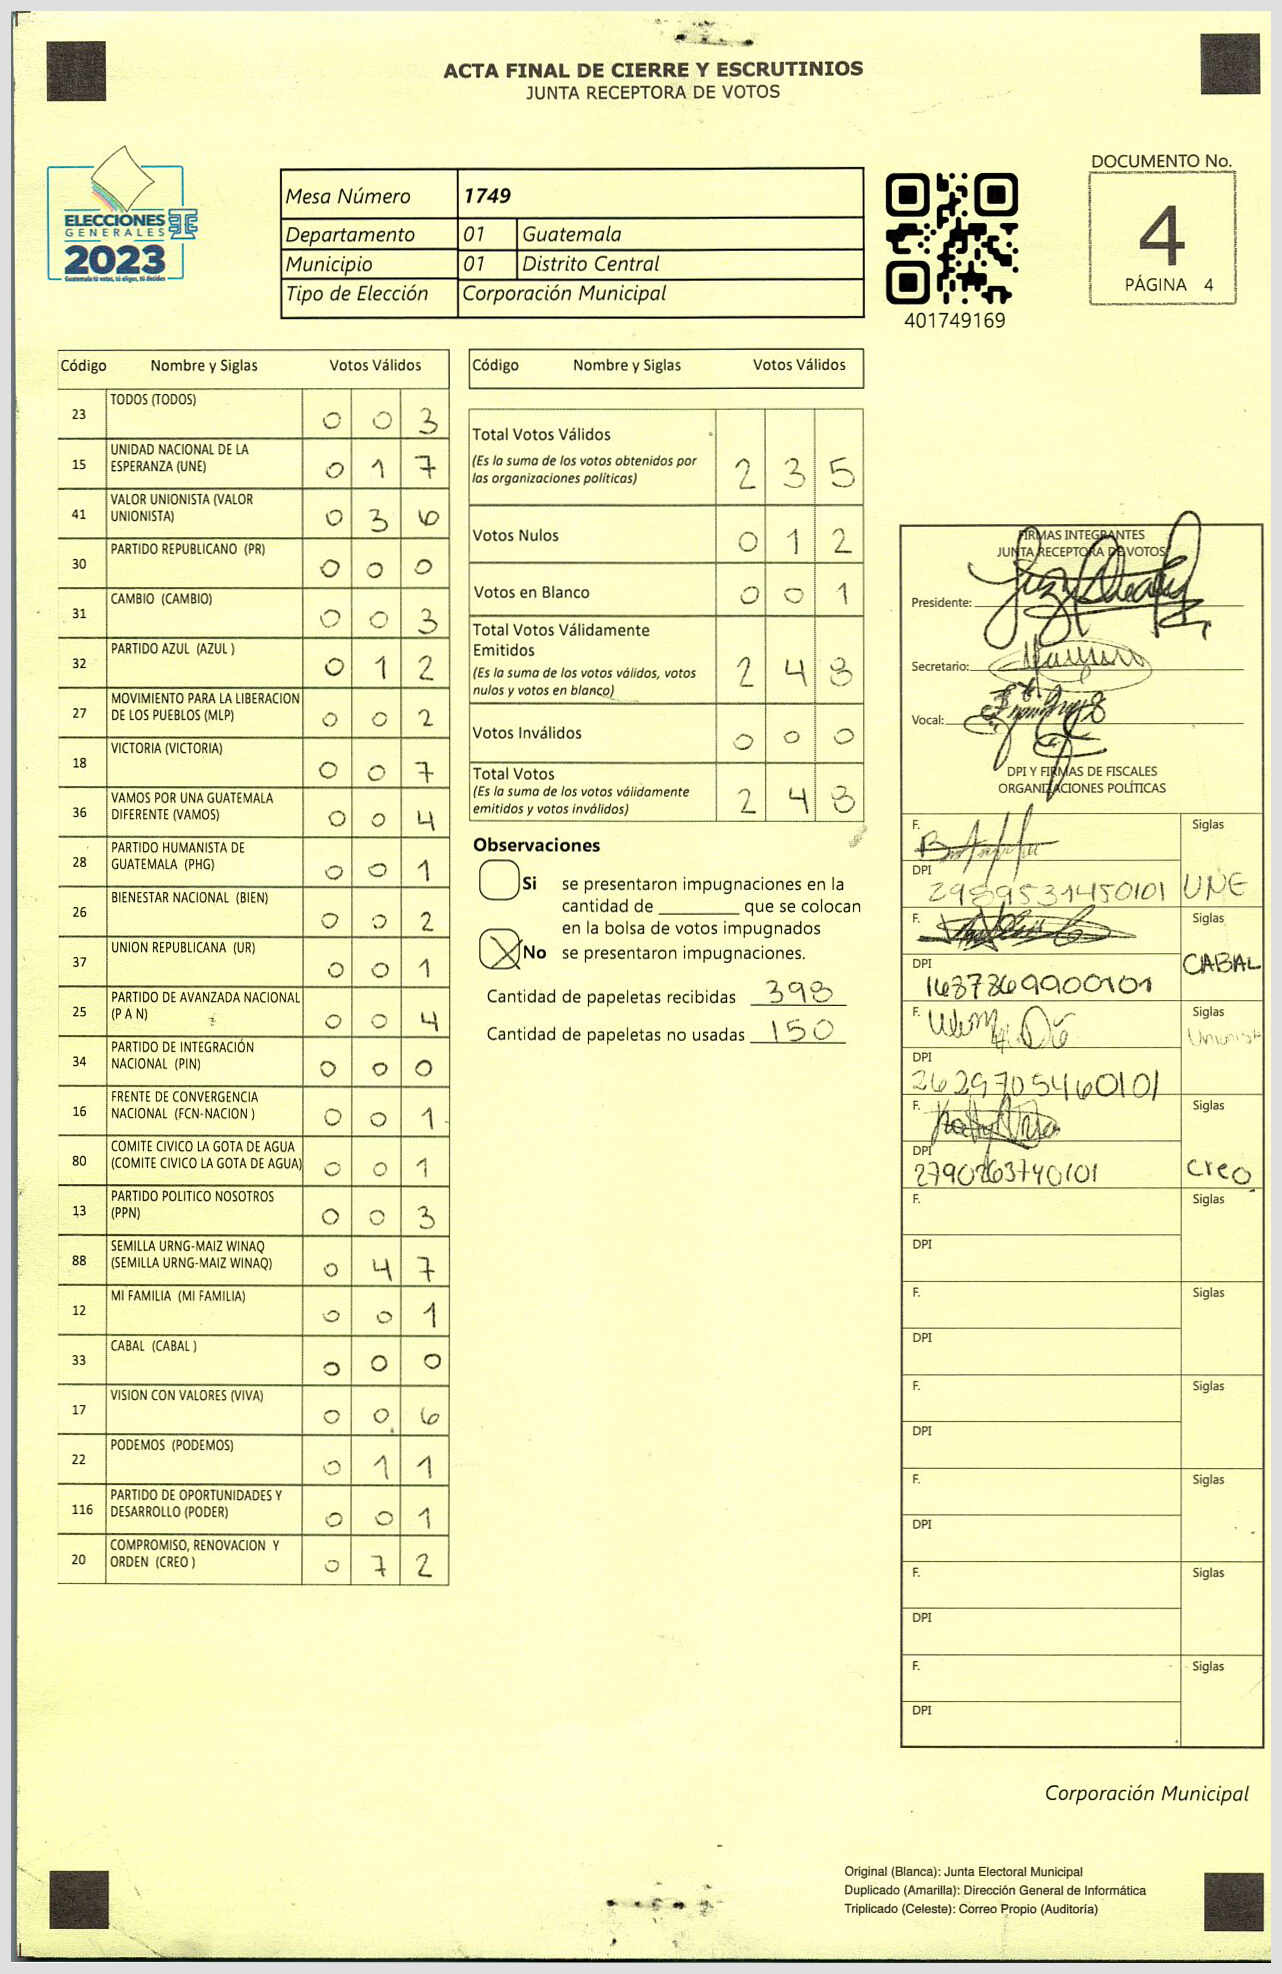 ACTA FINAL DE CIERRE Y ESCRUTINIOS
JUNTA RECEPTORA DE VOTOS
ELECCIONES
GENERALES
2023
Guatemala tú votas, tú eliges, tú decides
Mesa Número 1749
Departamento 01 Guatemala
Municipio 01 Distrito Central
Tipo de Elección Corporación Municipal
401749169
DOCUMENTO No.
4
PÁGINA 4
Código Nombre y Siglas Votos Válidos
23 TODOS (TODOS) 0 0 3
15 UNIDAD NACIONAL DE LA
ESPERANZA (UNE) 0 1 7
41 VALOR UNIONISTA (VALOR
UNIONISTA) 0 3 6
30 PARTIDO REPUBLICANO (PR) 0 0 0
31 CAMBIO (CAMBIO) 0 0 3
32 PARTIDO AZUL (AZUL ) 0 1 2
27 MOVIMIENTO PARA LA LIBERACION
DE LOS PUEBLOS (MLP) 0 0 2
18 VICTORIA (VICTORIA) 0 0 7
36 VAMOS POR UNA GUATEMALA
DIFERENTE (VAMOS) 0 0 4
28 PARTIDO HUMANISTA DE
GUATEMALA (PHG) 0 0 1
26 BIENESTAR NACIONAL (BIEN) 0 0 2
37 UNION REPUBLICANA (UR) 0 0 1
25 PARTIDO DE AVANZADA NACIONAL
(P A N) 0 0 4
34 PARTIDO DE INTEGRACIÓN
NACIONAL (PIN) 0 0 0
16 FRENTE DE CONVERGENCIA
NACIONAL (FCN-NACION ) 0 0 1
80 COMITE CIVICO LA GOTA DE AGUA
(COMITE CIVICO LA GOTA DE AGUA) 0 0 1
13 PARTIDO POLITICO NOSOTROS
(PPN) 0 0 3
88 SEMILLA URNG-MAIZ WINAQ
(SEMILLA URNG-MAIZ WINAQ) 0 4 7
12 MI FAMILIA (MI FAMILIA) 0 0 1
33 CABAL (CABAL ) 0 0 0
17 VISION CON VALORES (VIVA) 0 0 6
22 PODEMOS (PODEMOS) 0 1 1
116 PARTIDO DE OPORTUNIDADES Y
DESARROLLO (PODER) 0 0 1
20 COMPROMISO, RENOVACION Y
ORDEN (CREO ) 0 7 2
Código Nombre y Siglas Votos Válidos
Total Votos Válidos
(Es la suma de los votos obtenidos por
las organizaciones políticas) 2 3 5
Votos Nulos 0 1 2
Votos en Blanco 0 0 1
Total Votos Válidamente
Emitidos
(Es la suma de los votos válidos, votos
nulos y votos en blanco) 2 4 8
Votos Inválidos 0 0 0
Total Votos
(Es la suma de los votos válidamente
emitidos y votos inválidos) 2 4 8
Observaciones
Si se presentaron impugnaciones en la
cantidad de ________ que se colocan
en la bolsa de votos impugnados
No se presentaron impugnaciones.
Cantidad de papeletas recibidas 398
Cantidad de papeletas no usadas 150
FIRMAS INTEGRANTES
JUNTA RECEPTORA DE VOTOS
Presidente:
Secretario:
Vocal:
DPI Y FIRMAS DE FISCALES
ORGANIZACIONES POLÍTICAS
F. Siglas
DPI
2989531450101 UNE
F. Siglas
DPI CABAL
1687869900101
F. Siglas
DPI
2629705460101
F. Siglas
DPI
2790263740101 creo
F. Siglas
DPI
F. Siglas
DPI
F. Siglas
DPI
F. Siglas
DPI
F. Siglas
DPI
F. Siglas
DPI
Corporación Municipal
Original (Blanca): Junta Electoral Municipal
Duplicado (Amarilla): Dirección General de Informática
Triplicado (Celeste): Correo Propio (Auditoría)